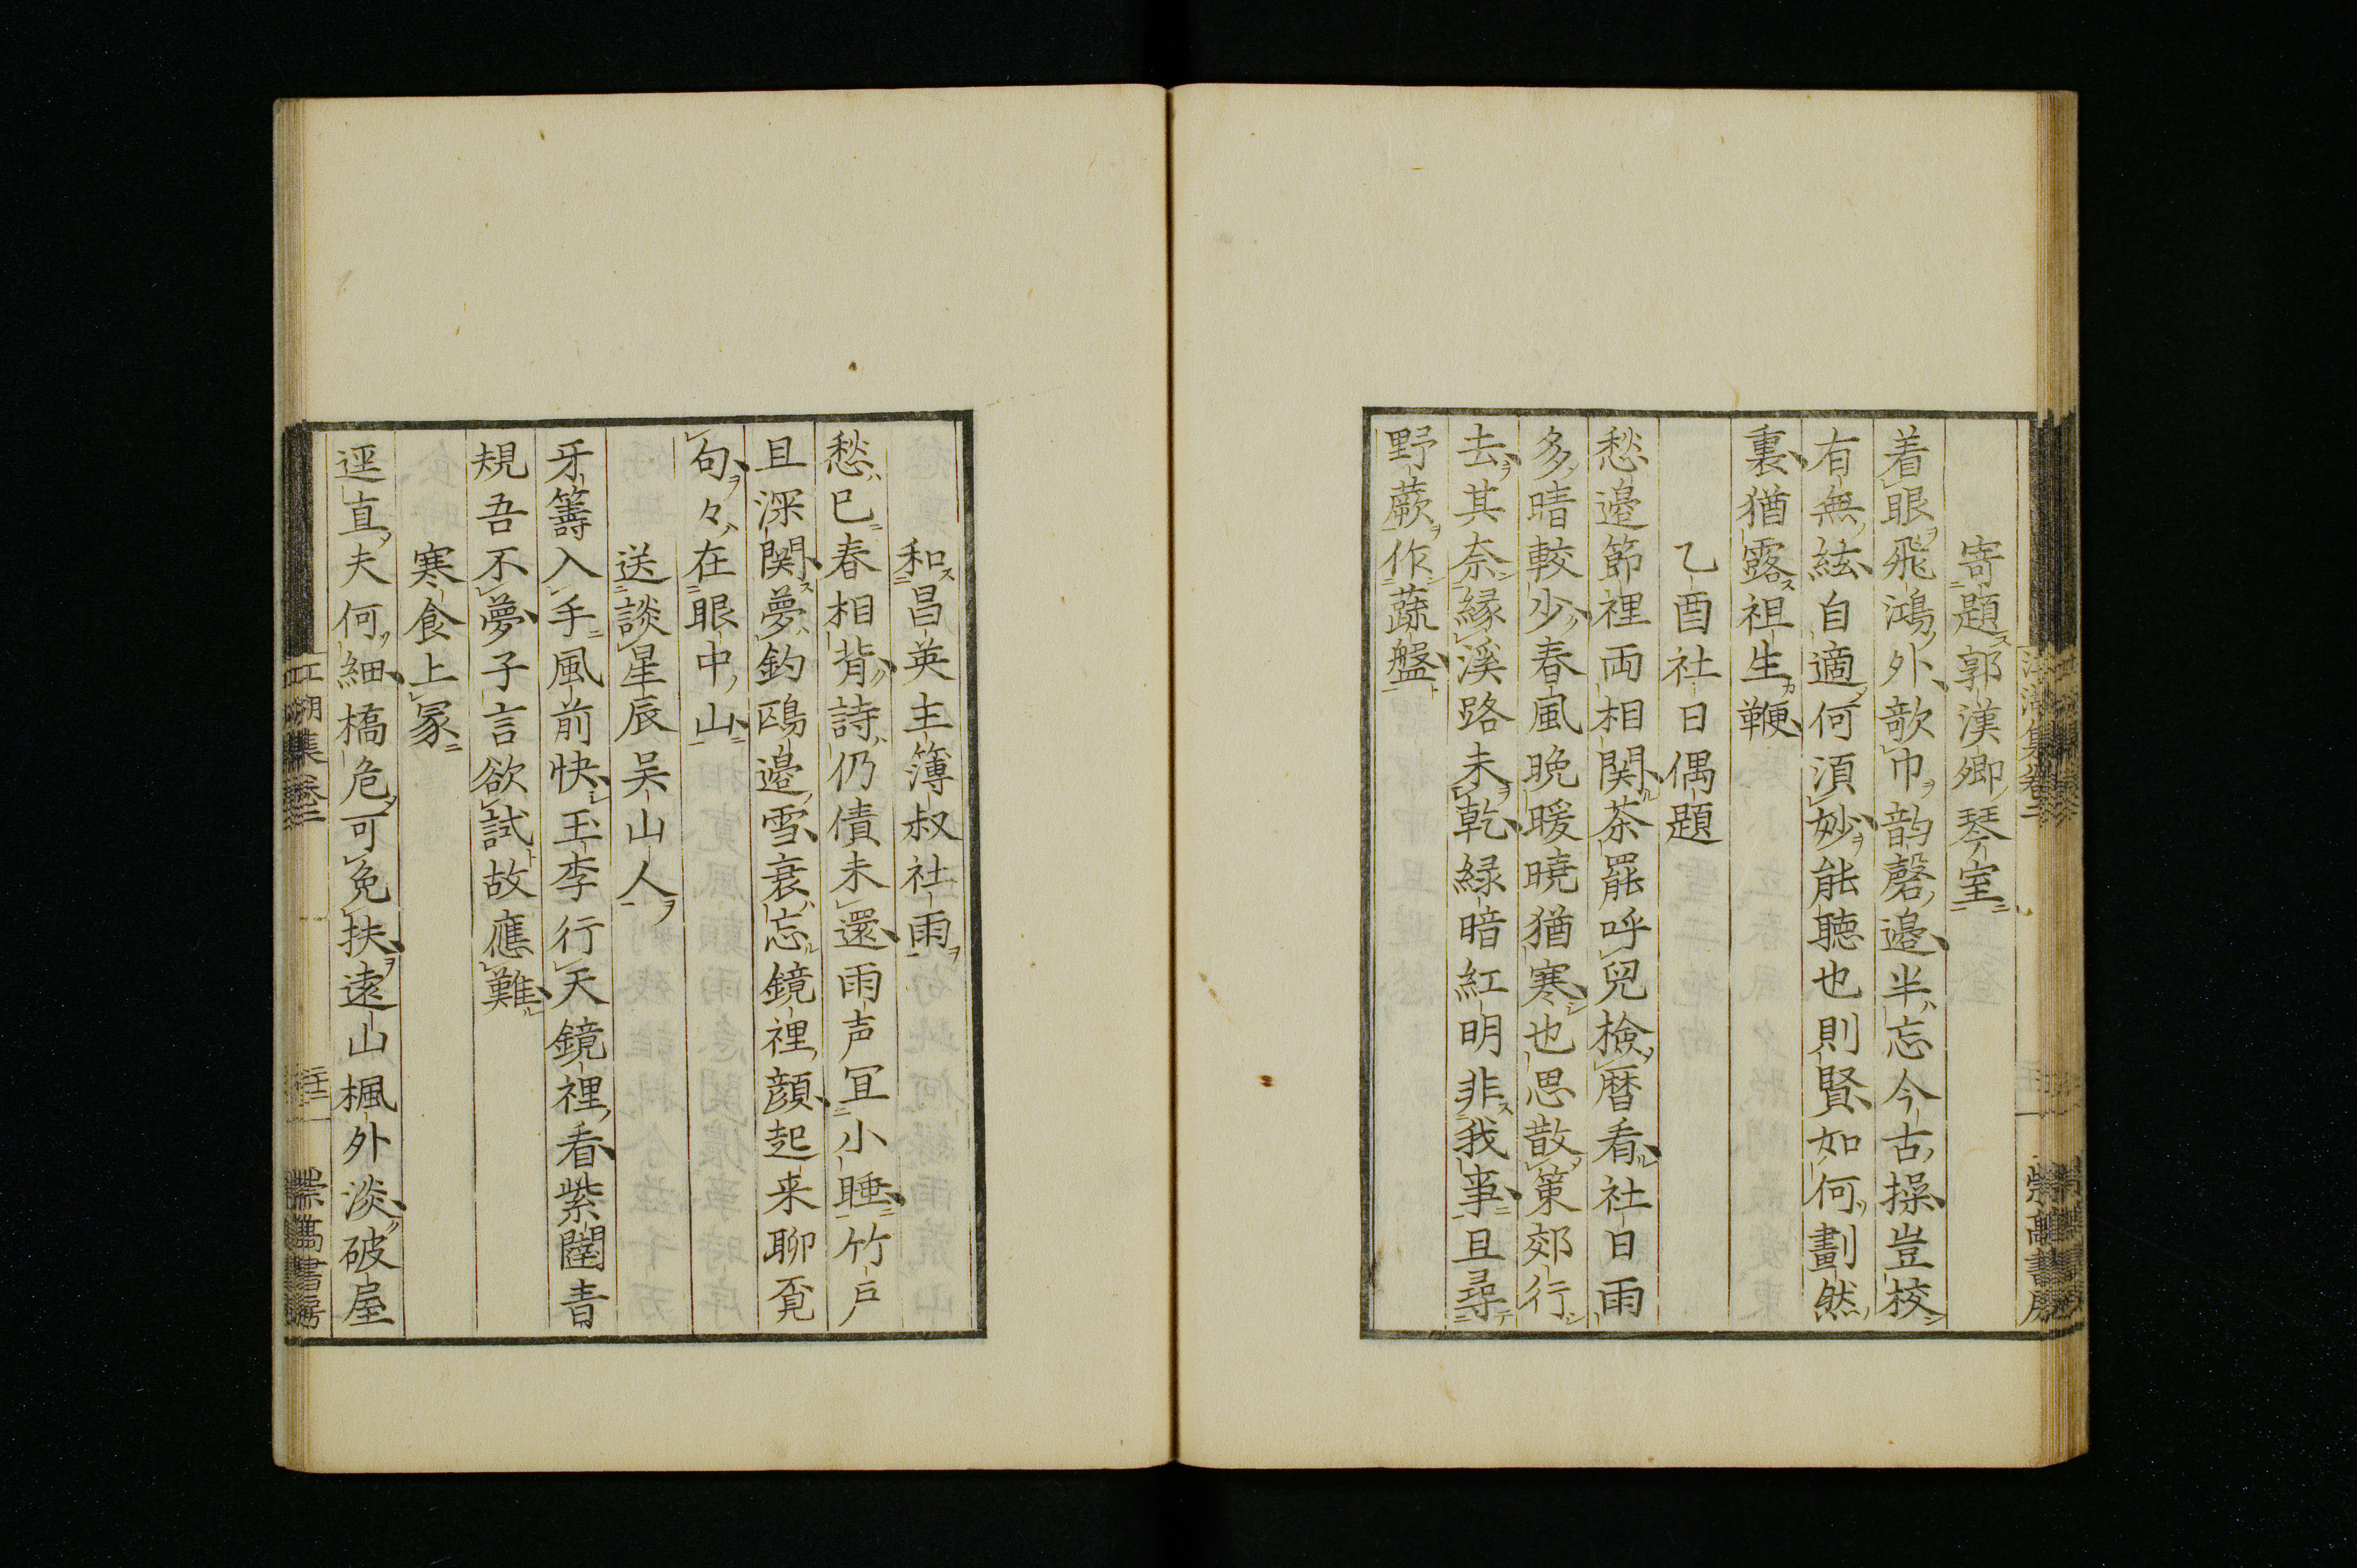 寄題郭漢卿琴室
着眼飛鴻外欹巾韵磬邊半忘今古操豈校
有無絃自適何須妙能聽也則賢如何劃然
裏猶露祖生鞭
乙酉社日偶題
愁邊節裡両相関茶罷呼兒檢暦看社日雨
多晴較少春風晩暖曉猶寒也思散策郊行
去其奈縁溪路未乾緑暗紅明非我事且尋
野蕨作蔬盤
和昌英主簿叔社雨
愁巳春相背詩仍債未還雨声冝小睡竹戸
且深関夢釣鴎邊雪衰忘鏡裡顔起来聊覓
句々在眼中山
送談星辰呉山人
牙籌入手風前快玉李行天鏡裡看紫闥青
規吾不夢子言欲試故應難
寒食上冢
逕直夫何細橋危可免扶遠山楓外淡破屋
江湖集巻二
崇高書房